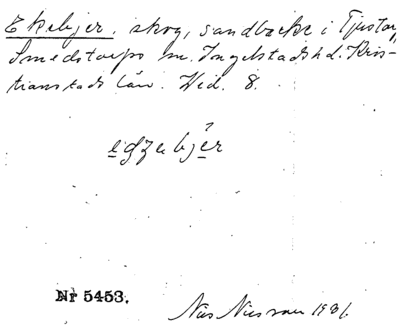 Ekebjer, skog, sandbacke i Tjustorp,
Smedstorps sn. Ingelstads hd. Kris-
tianstads län. Wed. 8.
Nr 5453.
Nils Nilsson 1931.